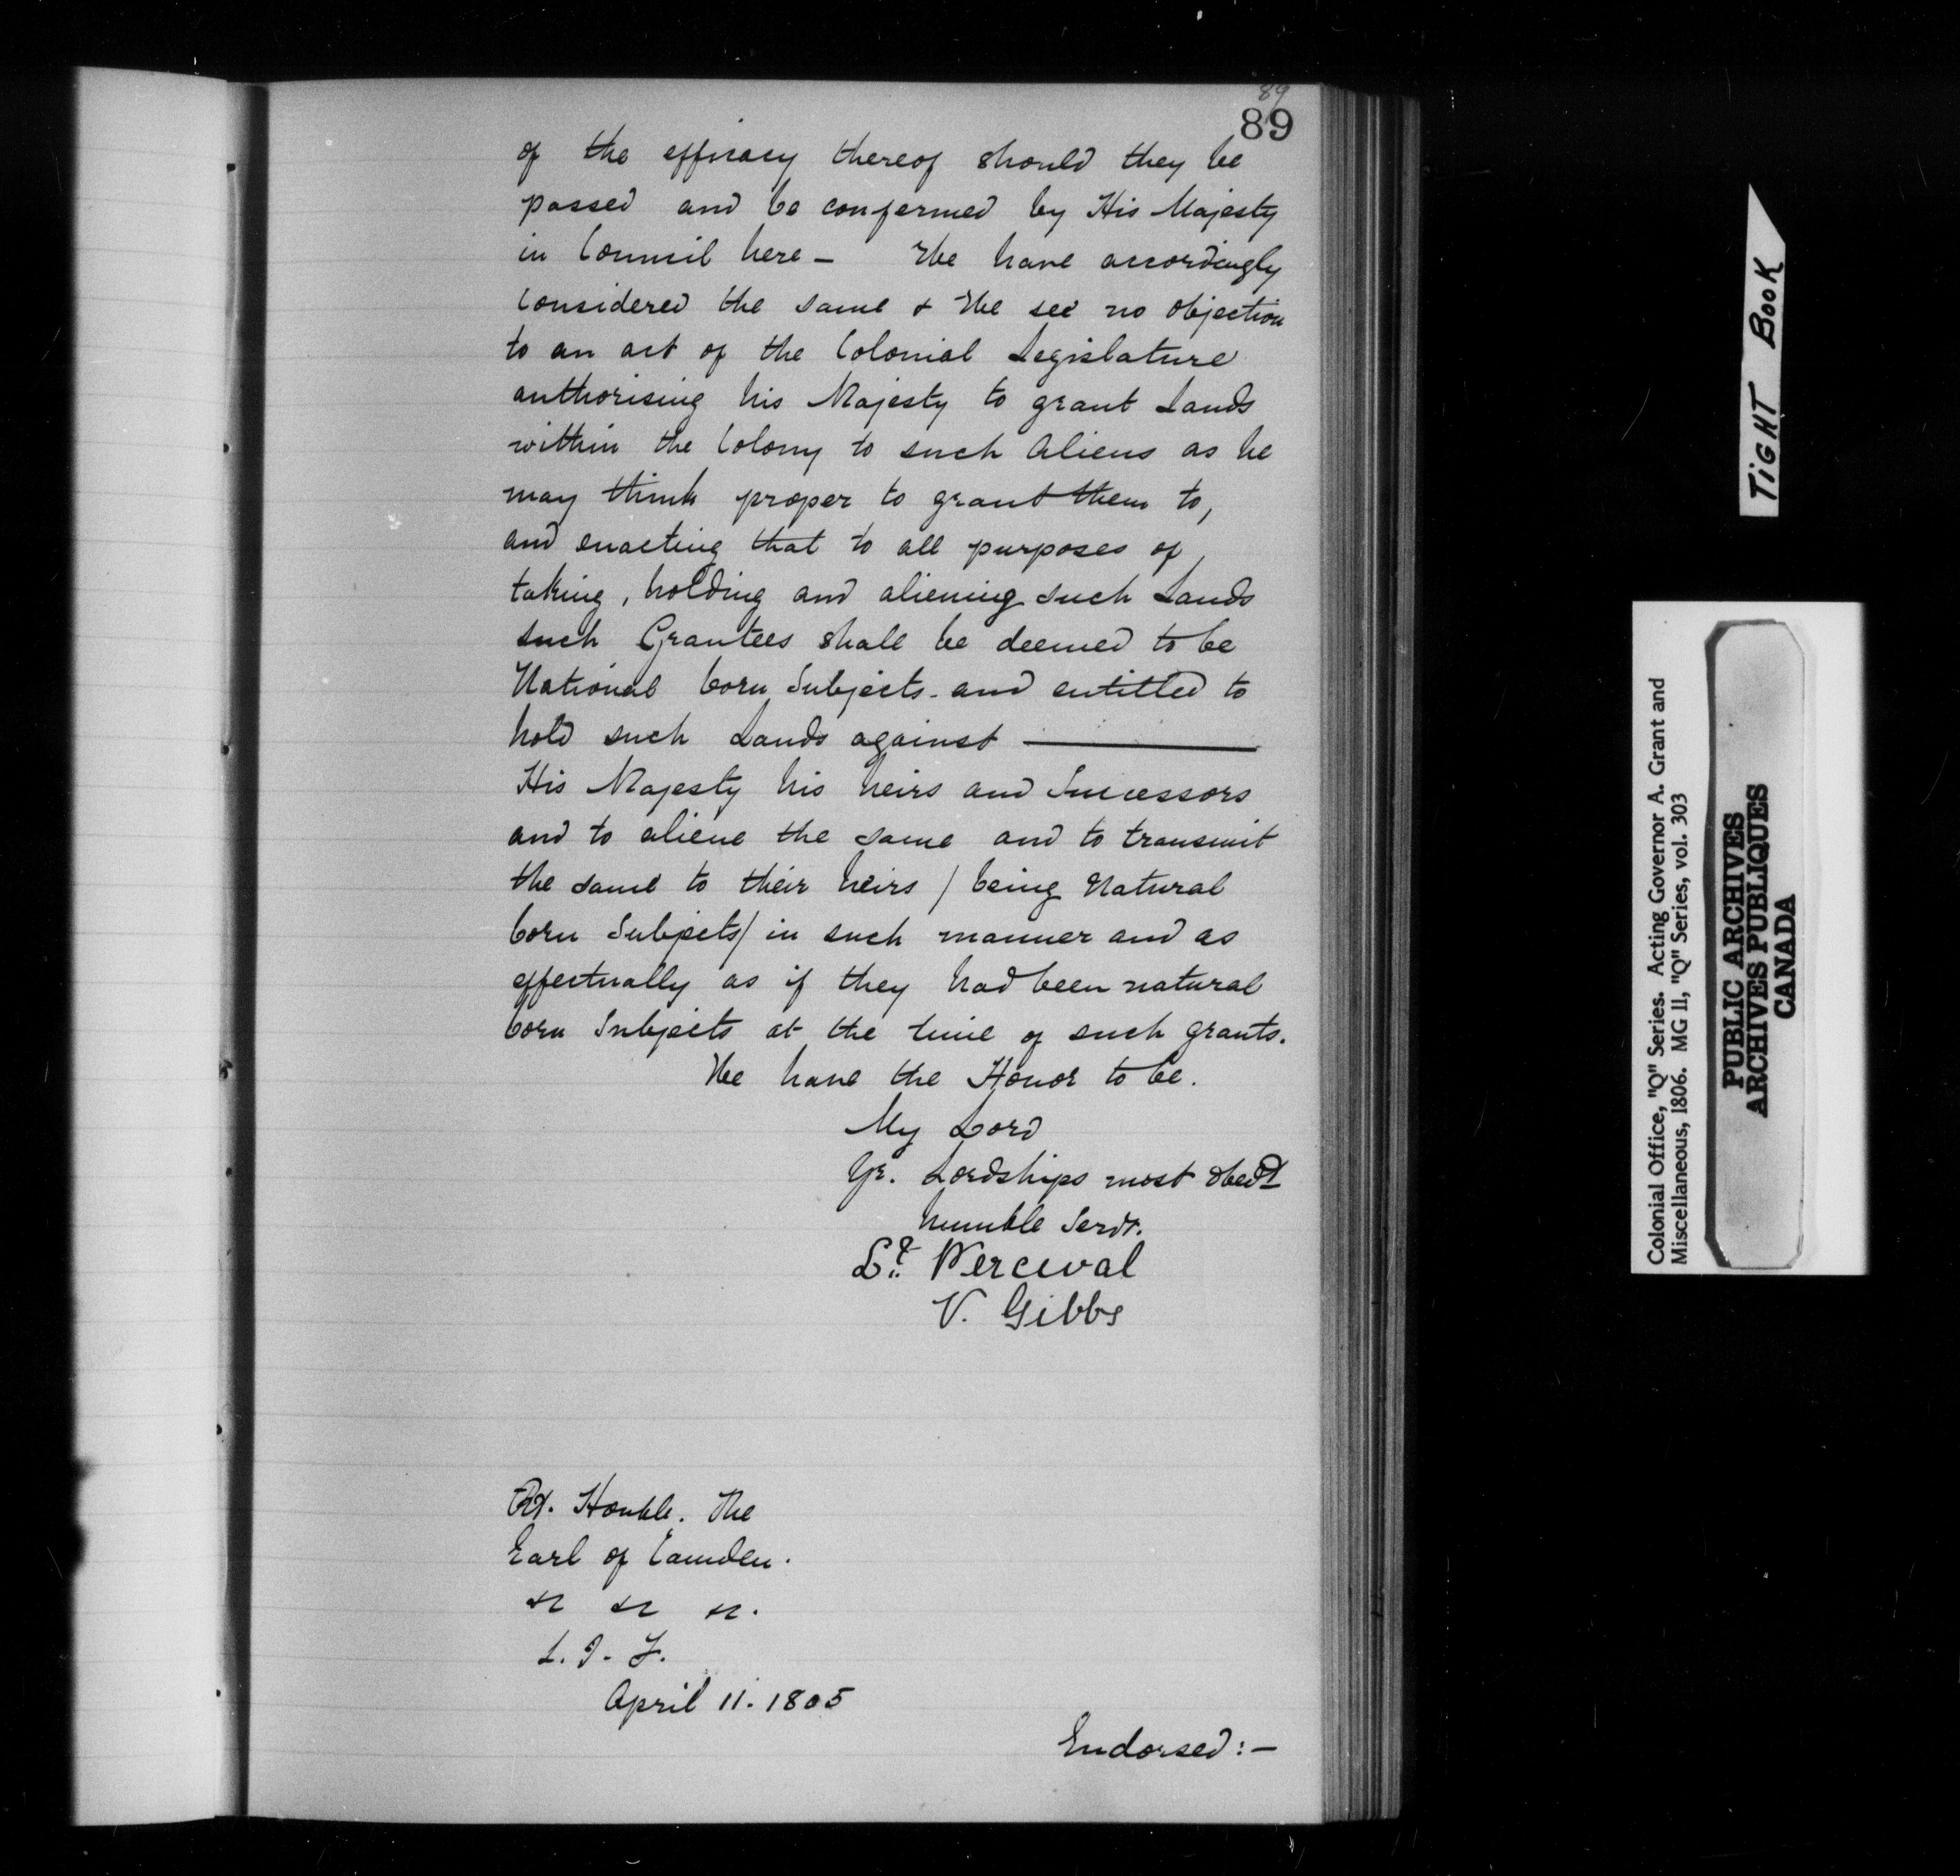 89
89
of the efficacy thereof should they be
passed and be confermed by His Majesty
in Council here - We have accordingly
Considered the same & We see no objection
to an act of the Colonial Legislature
authorising his Majesty to grant Lands
within the Colony to such Aliens as he
may think proper to grant them to,
and enacting that to all purposes of,
taking, holding and aliening such Lands
such Grantees shall be deemed to be
National born Subjects and entitled to
hold such Lands against ———
His Majesty his heirs and Successors
and to aliene the same and to transmit
the same to their heirs / being Natural
born Subjects / in such manner and as
effectually as if they had been natural
born Subjects at the time of such grants.
We have the Honor to be.
My Lord
Yr. Lordships most obedt
humble Servt.
Perceval
V. Gibbs
Rt. Honble. The
Earl of Camden.
&c &c &c.
L. I. F.
April 11. 1805
Endorsed:-
TIGHT BOOK
Colonial Office, "Q" Series. Acting Governor A. Grant and
Miscellaneous, 1806. MG 11, "Q" Series, vol. 303
PUBLIC ARCHIVES
ARCHIVES PUBLIQUES
CANADA